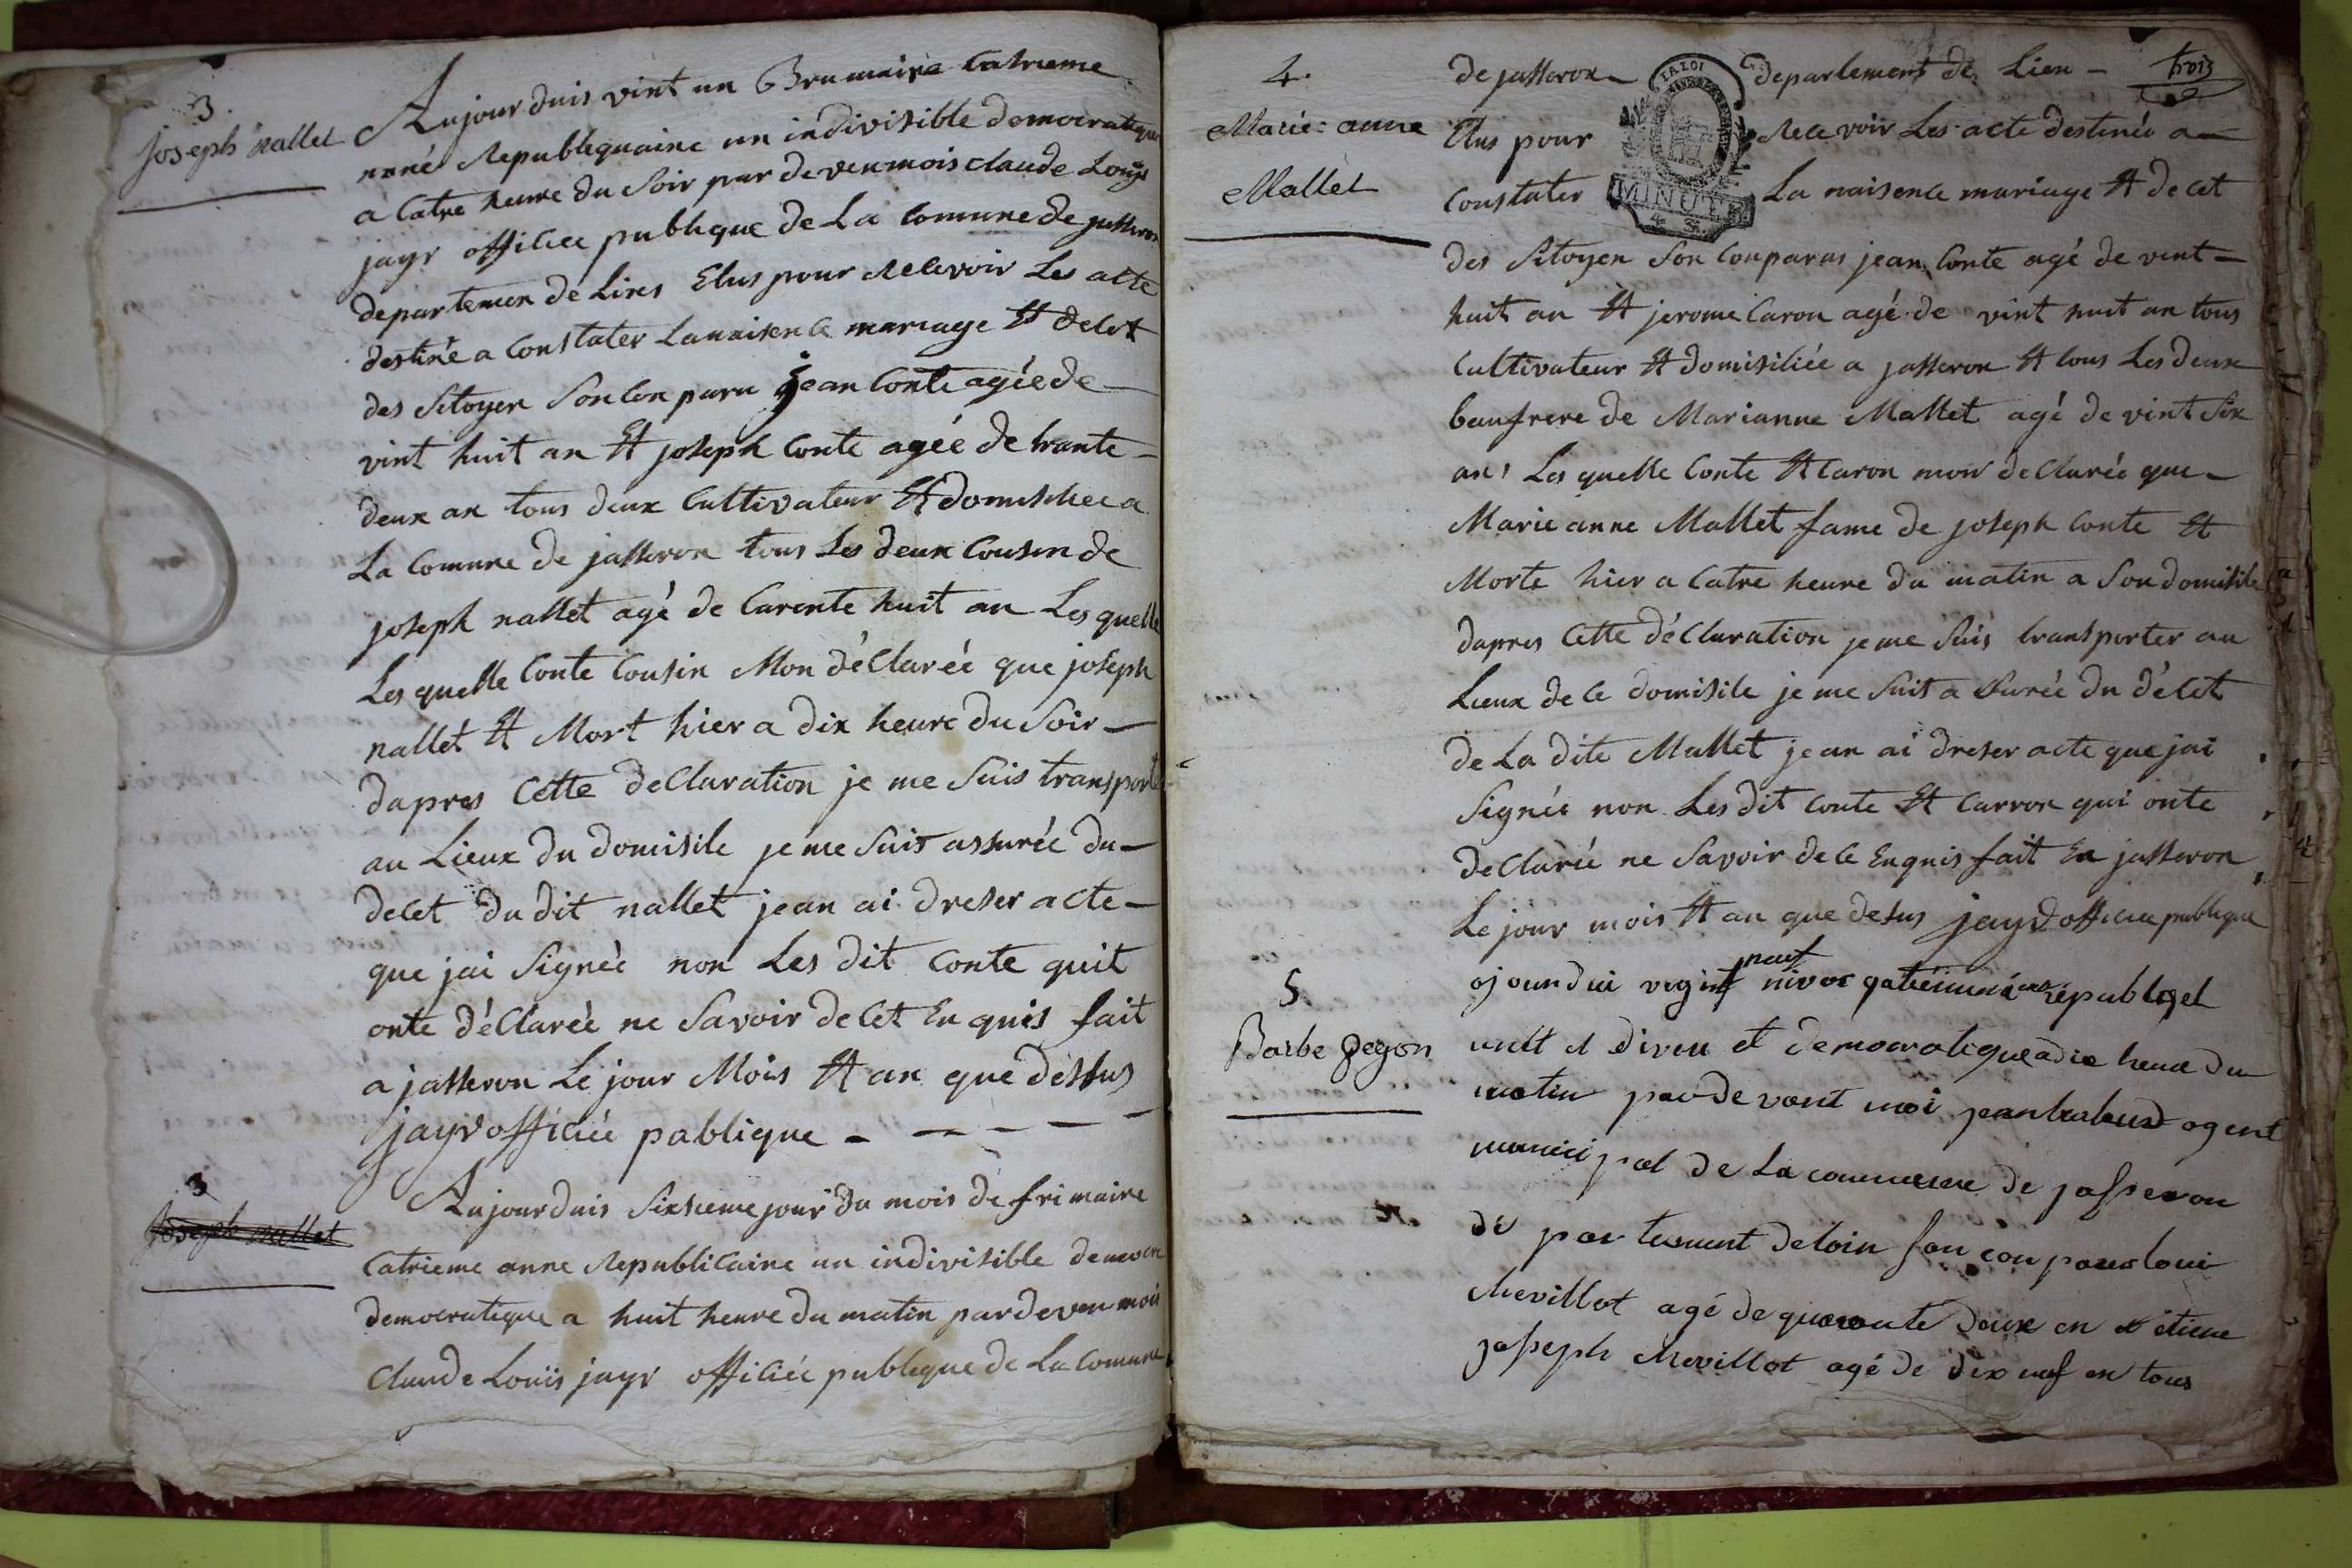 3.
Joseph nallet
Aujourduis vint un Brumaire Catrieme
anné Republiquaine un indivisible democratique
a Catre heure du Soir par devenmois claude Louis
jayr officiee publique de La Comune de jasseron
departemen de Lien Elus pour Recevoir Les acte
destiné a Constater La naisence mariage Et decet
des Sitoyen Son Con paru jean Conte agée de
vint huit an Et joseph Conte agée de trante
deux an tous deux Cultivateur Et domisiliee a
La Comune de jasseron tous Les deux Cousin de
joseph nallet agé de Carente huit an Les quelle
Les quelle Conte Cousin Mon déClarée que joseph
nallet Et Mort hier a dix heure du Soir
dapres Cette deClaration je me Suis transporté
au Lieux du domisile je me Suis assurée du
decet du dit nallet jean ai dreser acte
que jai Signée non Les dit Conte quit
onte déClarée ne Savoir de Cet En quis fait
a jasseron Le jour Mois Et an que dessus
jayr officiée publique
3
Joseph nallet
Aujourduis Sixsieme jour du mois de frimaire
Catrieme anne Republicaine un indivisible
democratique a huit heure du matin pardeven mois
Claude Louis jayr officiée publique de La Comune
4.
Marie: anne
Mallet
trois
de jasseron departement de Lien
Elus pour Recevoir Les acte destinée a
Constater La naisence mariage Et de cet
MINUTE
des Sitoyen Son Conparus jean Conte agé de vint
huit an Et jerome Caron agé de vint huit an tous
Cultivateur Et domisiliée a jasseron Et tous Les deux
beaufrere de Marianne Mallet agé de vint Six
an Les quelle Conte Et Caron mon deClarée que
Marie anne Mallet fame de joseph Conte Et
Morte hier a Catre heure du matin a Son domisile
dapres Cette déClaration je me Suis transporter au
Lieux de Ce domisile je me Suit a Surée du décet
de La dite Mallet jean ai dreser acte que jai
Signée non Les dit Conte Et Carron qui onte
deClarée ne Savoir de Ce Enquis fait En jasseron
Le jour mois Et an que desus jayr officiee publique
5.
Barbe pegon
ojourdui vigint neuf nivos
et democratique a dix heure du
matin par devant moi jean agent
municipal de La commune de jasseron
de partement deloin son con parus loui
chevillot agé de quarante deux en et etiene
jospeph chevillot agé de dix neuf en tous